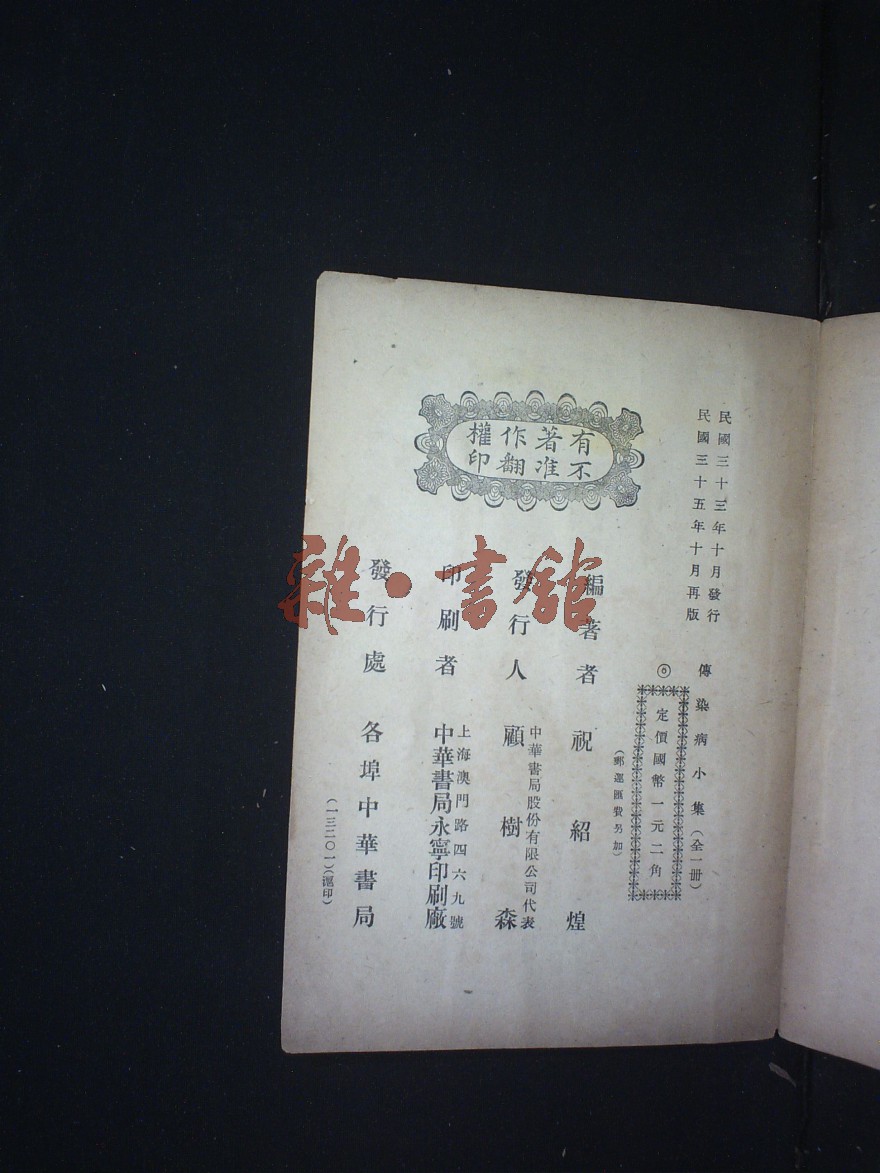 民國三十三年十月發行
民國三十五年十月再版
傳染病小集（全一冊）
⊙
定價國幣一元二角
（郵運匯費另加）
有著作權
不准翻印
編著者 祝紹煌
發行人
中華書局股份有限公司代表
顧樹森
印刷者
上海澳門路四六九號
中華書局永寧印刷廠
發行處 各埠中華書局
（一三二〇一）（滬印）
雜·書館